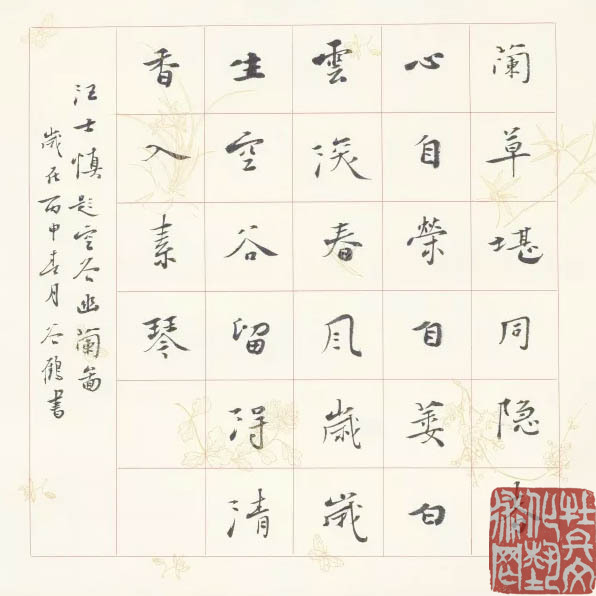 蘭草堪同隐
心自榮自萎白
雲深春風歲歲
生空谷留得清
香入素琴
汪士慎題空谷幽蘭圖
歲在丙申春月谷鶴書